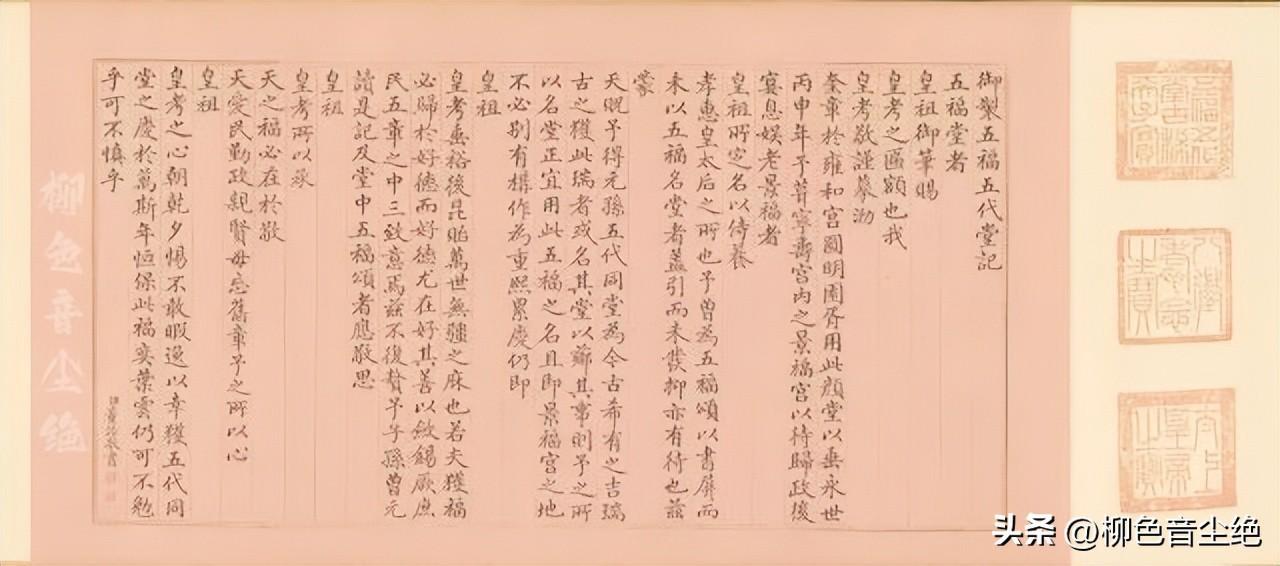 五福五代
堂古稀天
子寶
八徵
耄念
之寶
太上
皇帝
之寶
御製五福五代堂記
五福堂者
皇祖御筆賜
皇考之匾額也我
皇考敬謹摹泐
奎章於雍和宮圓明園胥用此顏堂以垂永世
丙申年予葺寧壽宮內之景福宮以待歸政後
宴息娛老景福者
皇祖所定名以侍養
孝惠皇太后之所也予曾為五福頌以書屏而
未以五福名堂者蓋引而未發抑亦有待也茲
蒙
天貺予得元孫五代同堂為今古希有之吉瑞
古之獲此瑞者或名其堂以其事則予之所
以名堂正宜用此五福之名且即景福宮之地
不必別有構作為重熙累慶仍即
皇祖
皇考垂裕後昆貽萬世無疆之庥也若夫獲福
必歸於好德而好德尤在好其善以斂錫厥庶
民五章之中三致意焉茲不復贅予子孫曾元
讀是記及堂中五福頌者應敬思
皇祖
皇考所以承
天之福必在於敬
天愛民勤政親賢毋忘舊章予之所以心
皇祖
皇考之心朝乾夕惕不敢暇逸以幸獲五代同
堂之慶於萬斯年恒保此福奕葉雲仍可不勉
乎可不慎乎
柳色音尘绝
头条 @柳色音尘绝